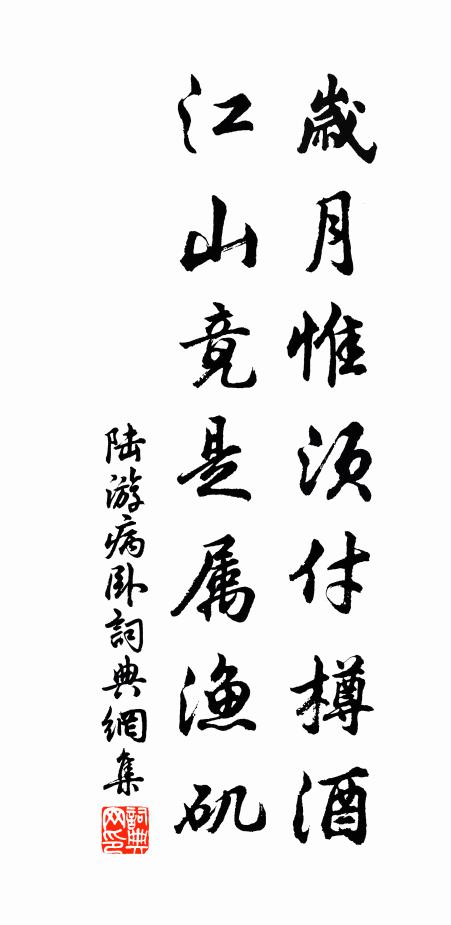 歲月惟須付樽酒
江山竟是属漁矶
陆游病卧詞典網集
詞典網印